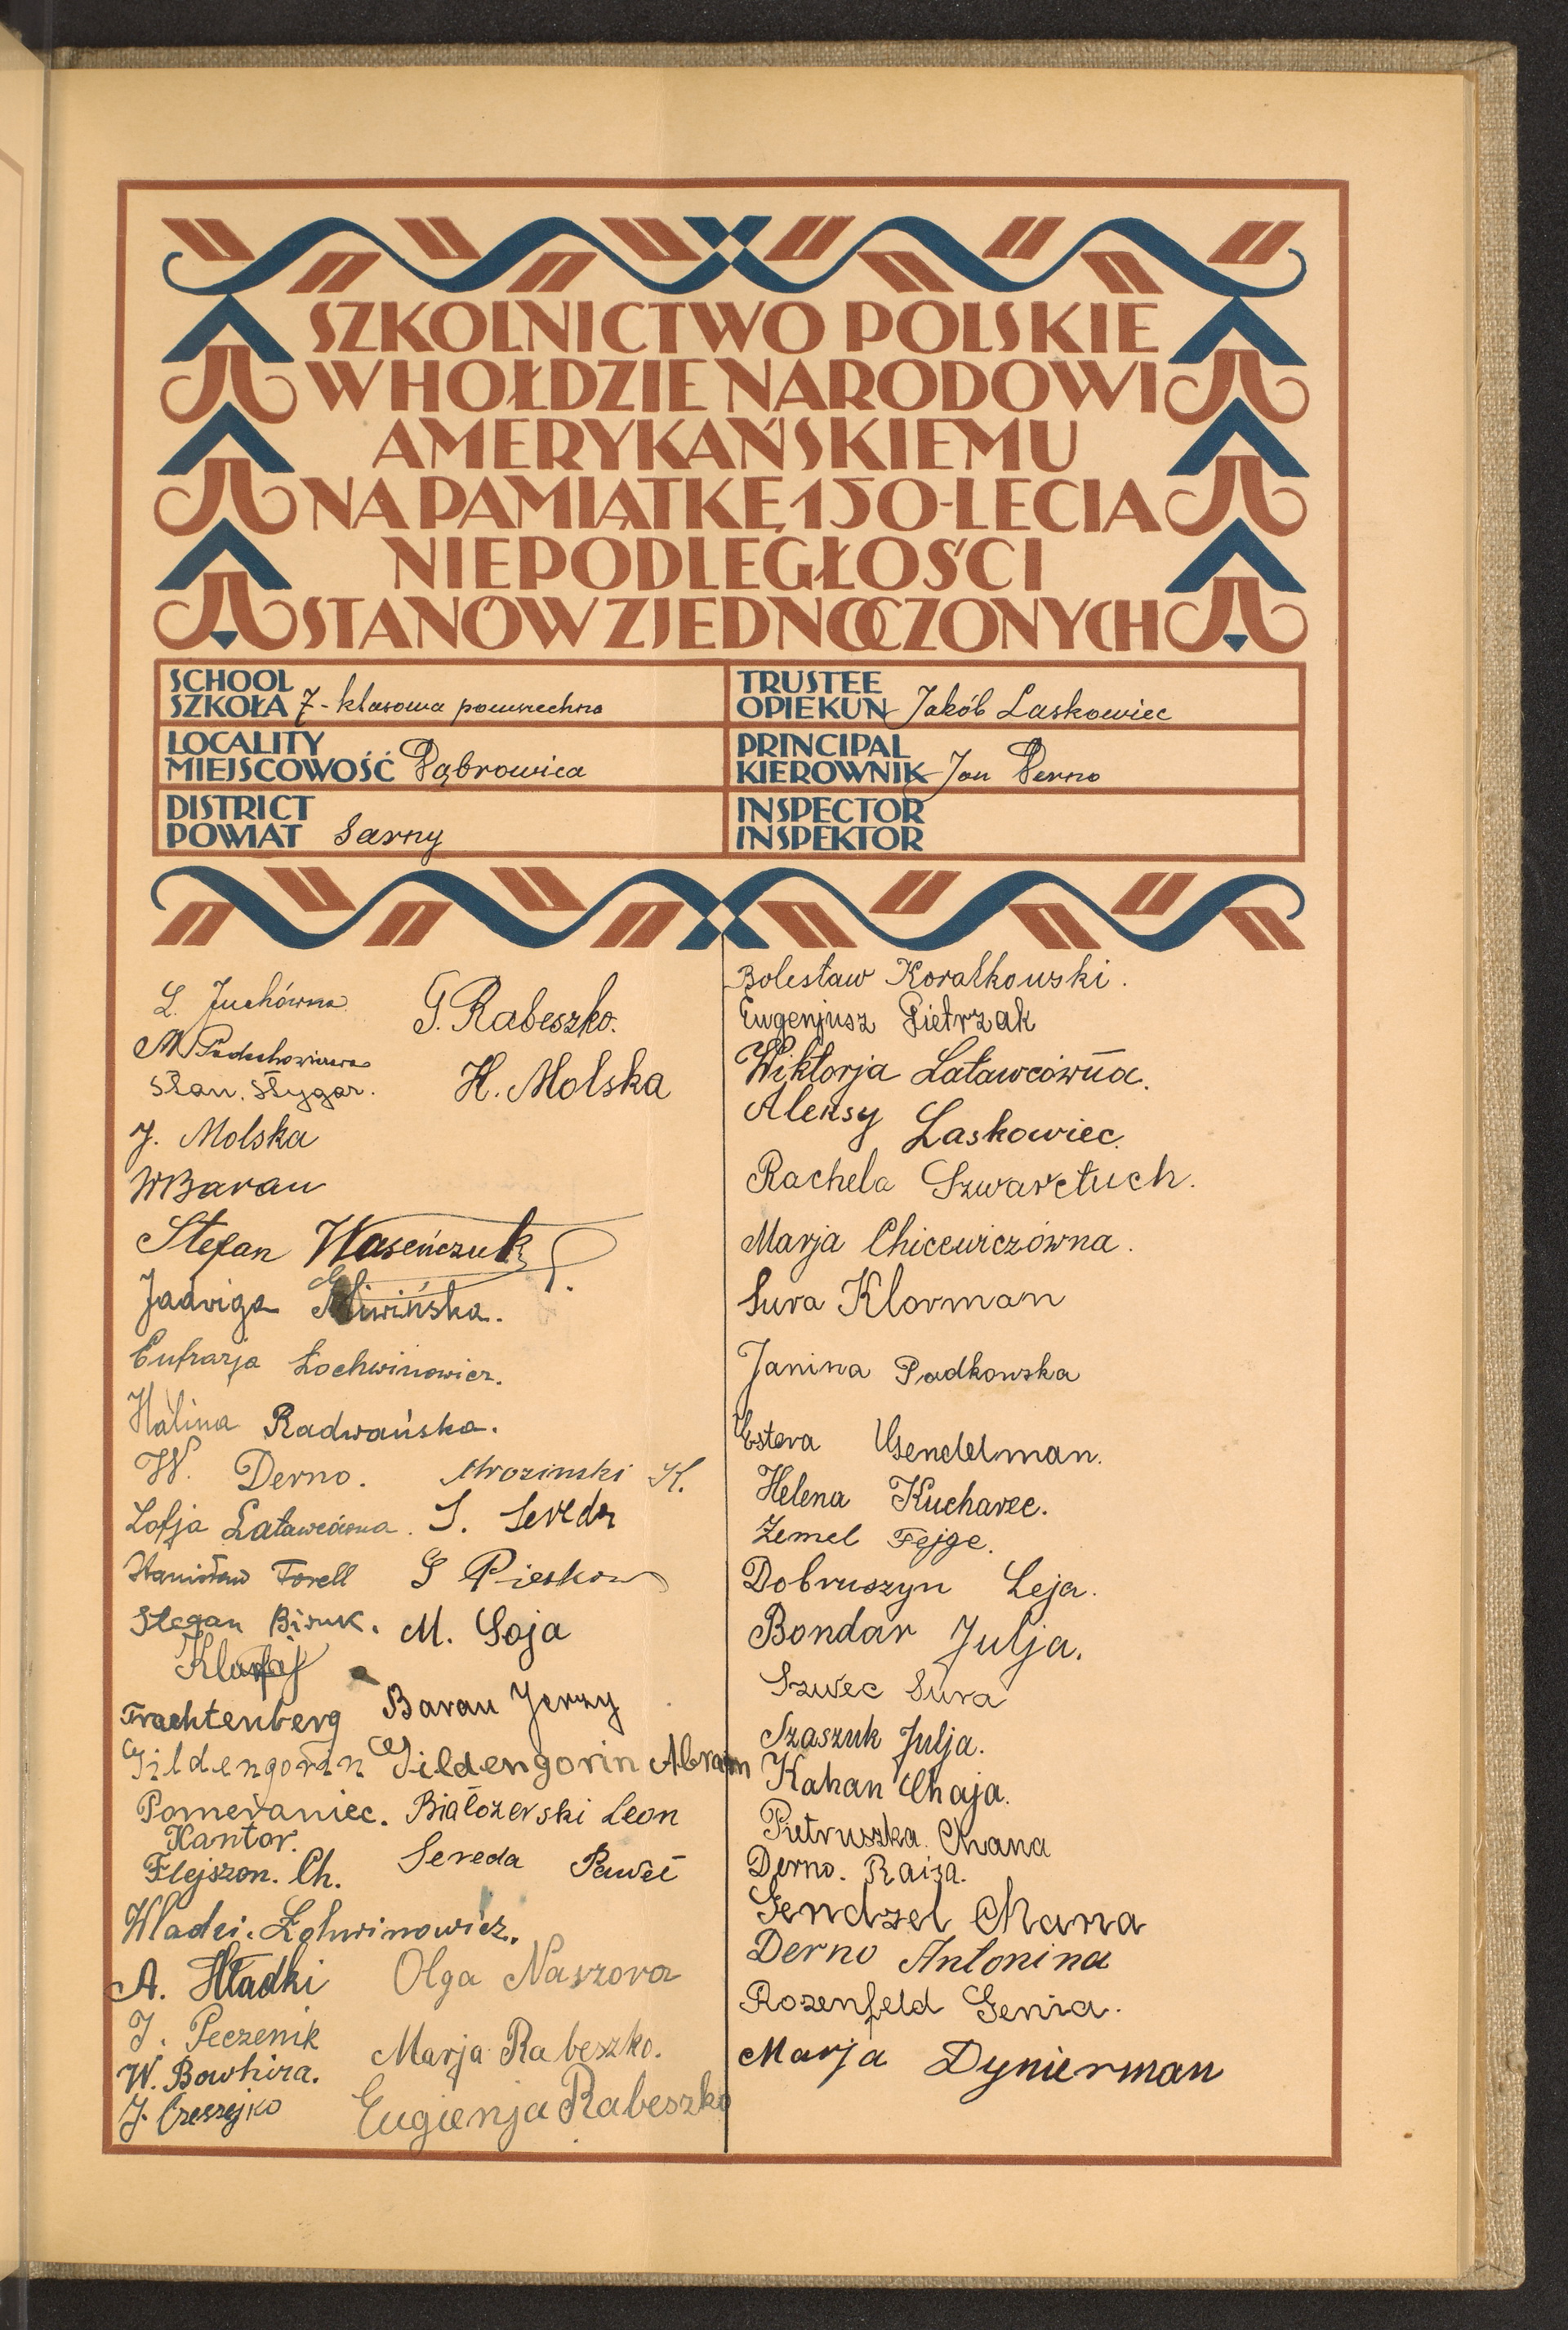 SZKOLNICTWO POLSKIE
W HOŁDZIE NARODOWI
AMERYKAŃSKIEMU
NA PAMIĄTKĘ 150-LECIA
NIEPODLEGŁOŚCI
STANÓW ZJEDNOCZONYCH
SCHOOL
SZKOŁA 7-klasowa powszechna
TRUSTEE
OPIEKUN Jakób Laskowiec
LOCALITY
MIEJSCOWOŚĆ Dąbrowica
PRINCIPAL
KIEROWNIK Jan Derno
DISTRICT
POWIAT Sarny
INSPECTOR
INSPEKTOR
L. Juchówna
G. Rabeszko.
M
Stan. Stygar.
H. Molska
J. Molska
W Baran
Stefan Waseńczuk
Jadwiga
Eufrazja Łochwinowicz.
Halina Radwańska.
W. Derno. Mrozinski K.
Zofja Latawcówna. S.
Stanisław Torell G Pieskow
Stefan Bisuk. M. Soja
Trachtenberg Baran Jerzy
Gildengorin Gildengorin Abram
Pomeraniec. Białozerski Leon
Kantor.
Flejszon. Ch. Sereda Paweł
Wladzi. Łohwinowicz.
A. Hładki Olga Naszova
J. Peczenik Marja Rabeszko.
W. Bowhira.
J. Czeszejko Eugienja Rabeszko
Bolesław Koralkowski.
Eugenjusz Pietrzak
Wiktorja Latawcówna.
Aleksy Laskowiec.
Rachela Szwarctuch.
Marja Chicewiczówna.
Sura Klorman
Janina Padkowska
Estera Gendelman.
Helena Kucharec.
Zemel Fejge.
Dobruszyn Leja.
Bondar Julja.
Szwec Sura
Szaszuk Julja.
Kahan Chaja.
Pietruszka Chana
Derno. Raisa.
Gendzel Chana
Derno Antonina
Rozenfeld Genia.
Marja Dynierman